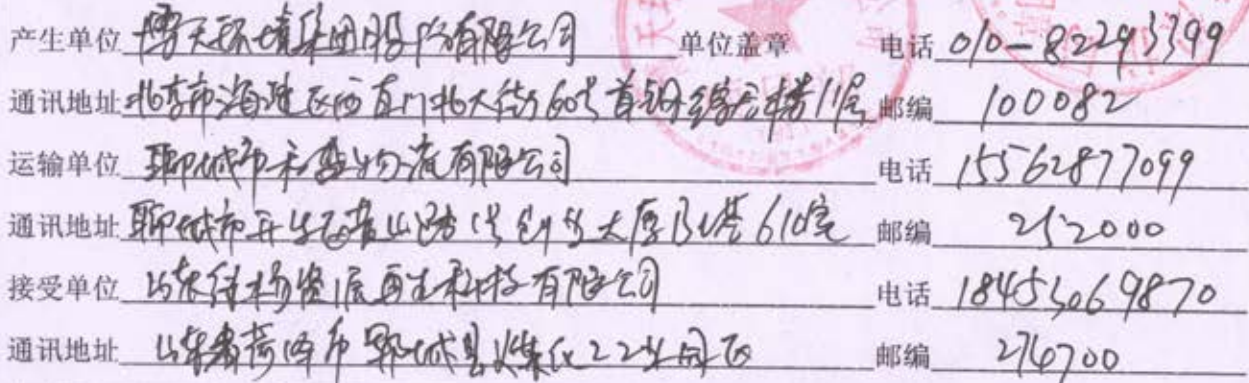 产生单位 博天环境集团股份有限公司 单位盖章 电话 010-82293399
通讯地址 北京市海淀区西直门北大街60号首钢综合楼11层 邮编 100082
运输单位 聊城市禾益物流有限公司 电话 15562877099
通讯地址 聊城市开发区黄山路1号创业大厦B座610室 邮编 252000
接受单位 山东 再生科技有限公司 电话 18453069870
通讯地址 山东省菏泽市郓城县煤化工业园区 邮编 274700